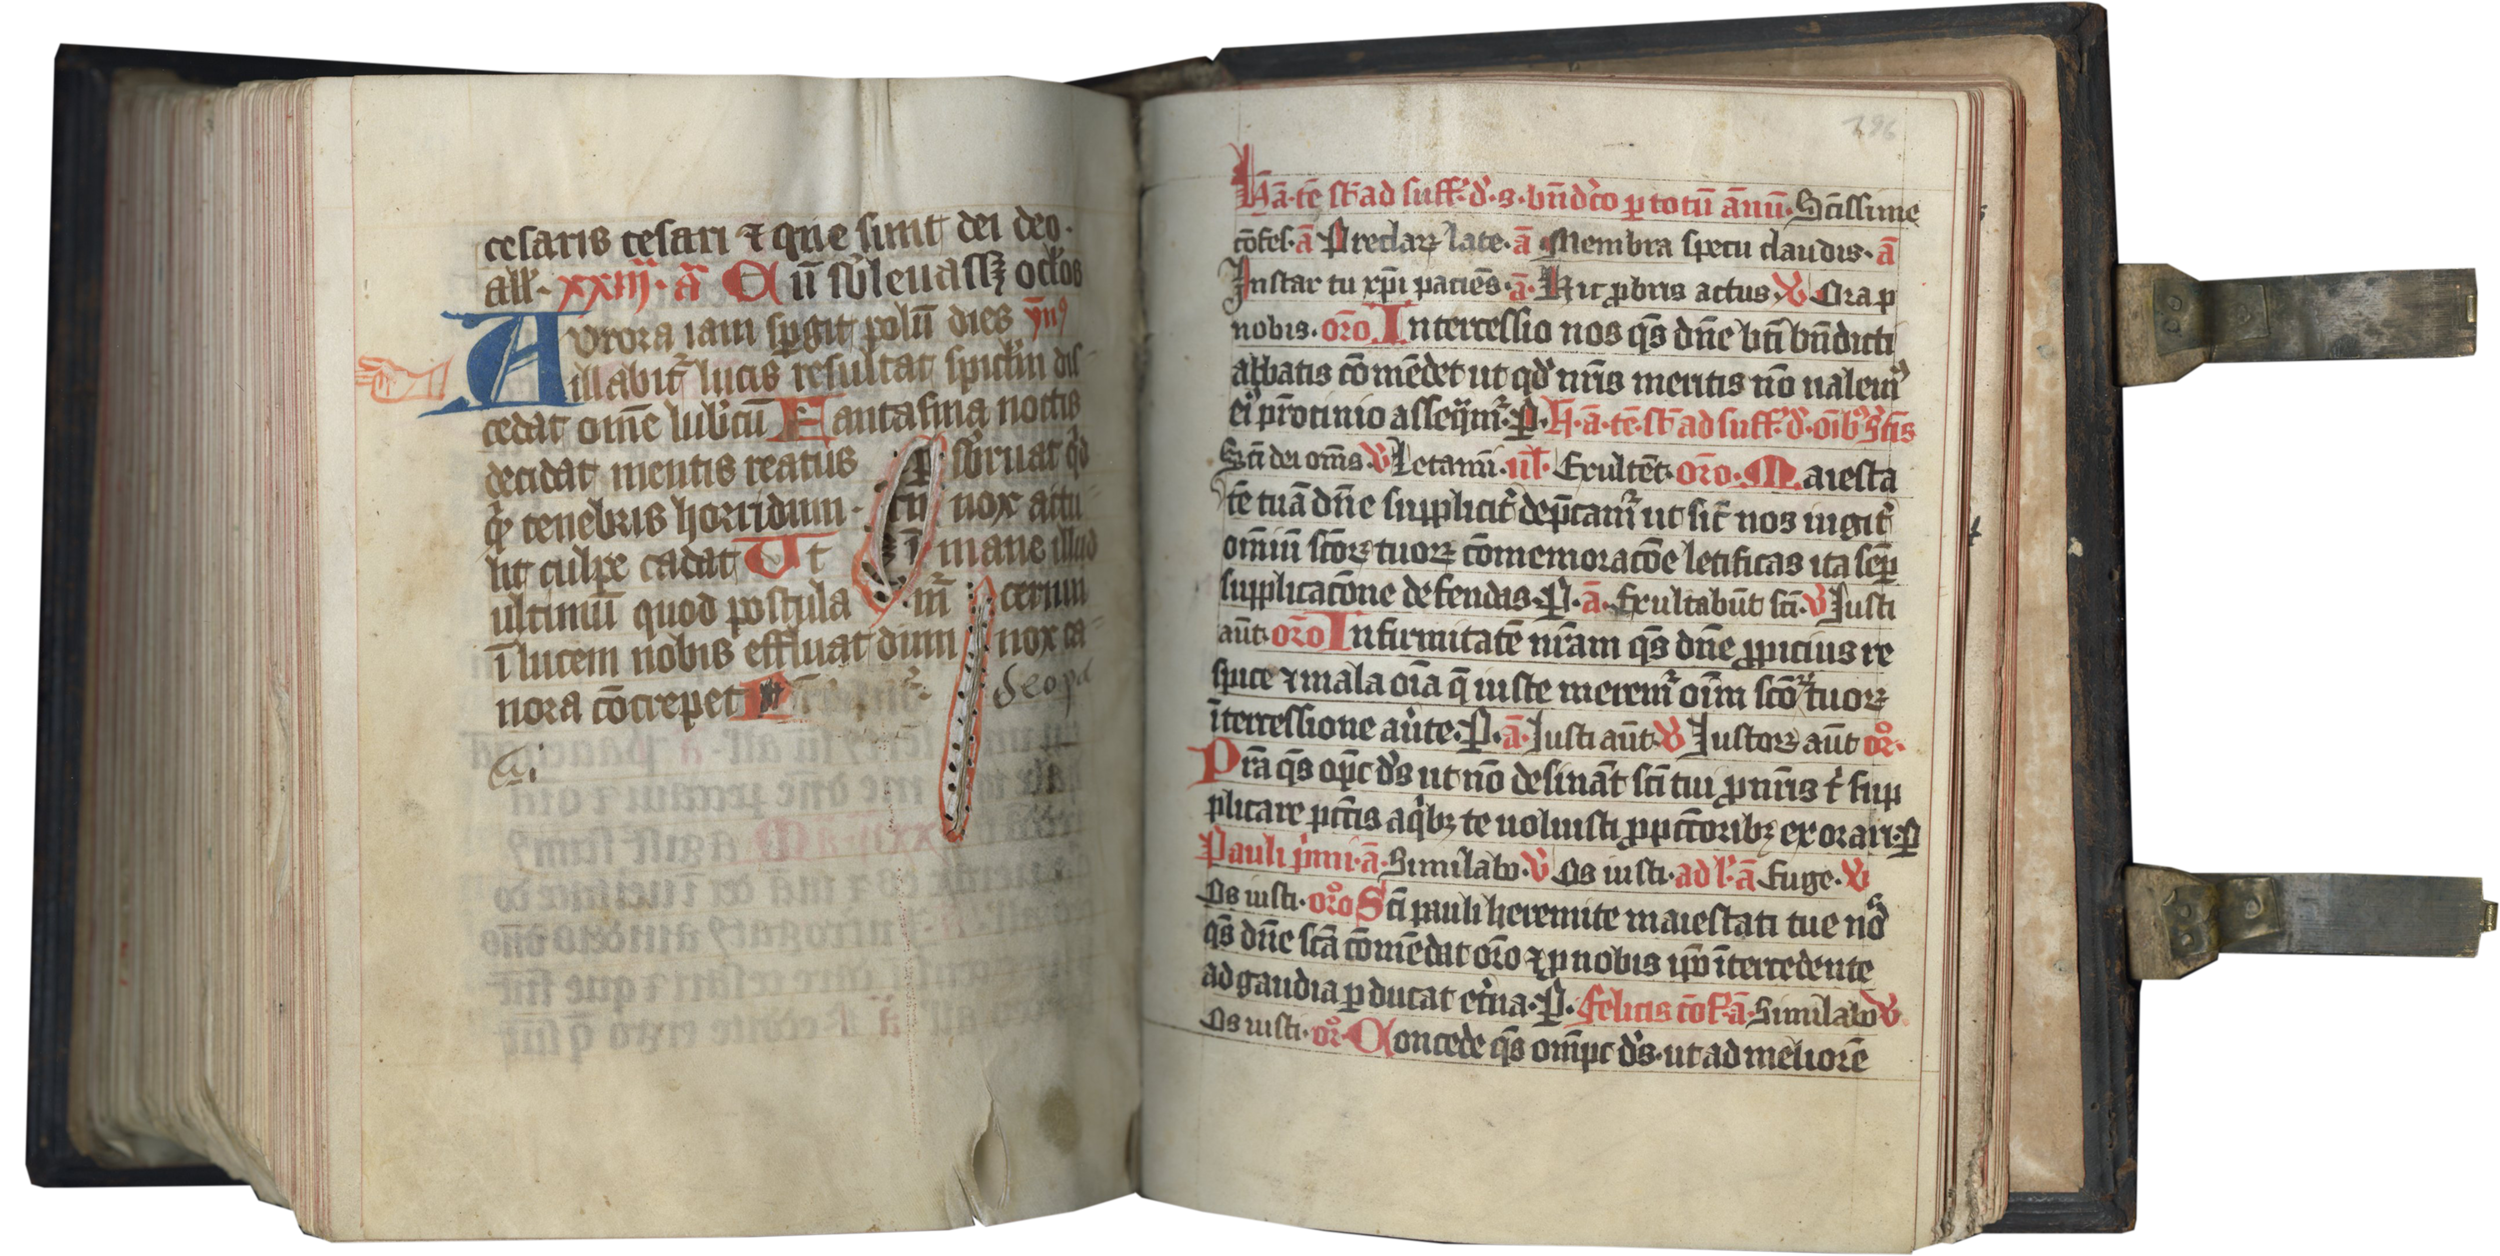 cesaris cesari ⁊ que sunt dei deo.
all'. xxiij. a᷃ Cū s᷑b leuass; oc᷑los
Aurora iam sp̲git polū dies ẏn᷒
illabit᷑ lucis resultat spic᷑lū dis
cedat om̄e lub᷑cū Fantasma noctis
decidat mentis reatus s᷑bruat q᷑d
q᷑ tenebris horridum. nox attu
lit culpe cadat Ut mane illud
ultimū quod postula m᷑ cernui
ī lucem nobis effluat dum nox ca
nora cōcrepet P
deo pa
196
H᷑.ā.tē.sr̄ ad suff᷑.d᷑.s.bn̄d᷑co p̲ totū ānū. Sc̄issime
cōfes. ā P̲reclar̲ late. ā Membra specu claudis. ā
Instar tu xp̄i paciēs. ā. Hic p̲bris actus. V᷑ Ora p̲
nobis. or̄o. Intercessio nos q̄s dn̄e bt̄i bn̄dicti
abbatis cōmēdet ut qd᷑ nr̄is meritis nō ualem᷒
ei᷒ pr̄ocinio asseq̄m᷑. P̲. H᷑.ā.tē.sr̄ ad suff᷑.d᷑.oīb᷒ sc̄is
Sc̄i dei om̄s. V᷑ Letamī. ul̄. Exultēt. or̄o. Maiesta
tē tuā dn̄e supplicit᷑ dep̄cam᷑ ut sic̄ nos iugit᷑
om̄iū sc̄or̲ tuor̲ cōmemoracōe letificas ita semp̲
supplicacōne defendas. P̲. ā. Exultabūt sc̄i. V᷑ Iusti
aūt. or̄o Infirmitatē nr̄am q̄s dn̄e p̲picius re
spice ⁊ mala oīa q̄ iuste merem᷑ oīm sc̄or̲ tuor̲
īterressione au᷑te. P̲. ā. Iusti aūt. V᷑ Iustor̲ aūt or᷒.
Pr̄a q̄s op̄c d᷑s ut nō desināt sc̄i tui p̲ nr̄is t᷑ sup
plicare pc̄cis a q᷑b; te uoluisti p̲ pc̄corib; exorari. P̲
Pauli p᷑mi. ā. Similabo. V᷑ Os iusti. ad l᷑. ā Euge. V᷑
Os iusti. or̄o Sc̄i pauli heremite maiestati tue nos
q̄s dn̄e sc̄a cōmēdat or̄o ⁊ p̲ nobis ip̄o ītercedente
ad gaudia p̲ducat et᷑na. P̲. felicis cōf. ā. Similabo V᷑.
Os iusti. or᷒. Concede q̄s om̄pc d᷑s. ut ad meliorē